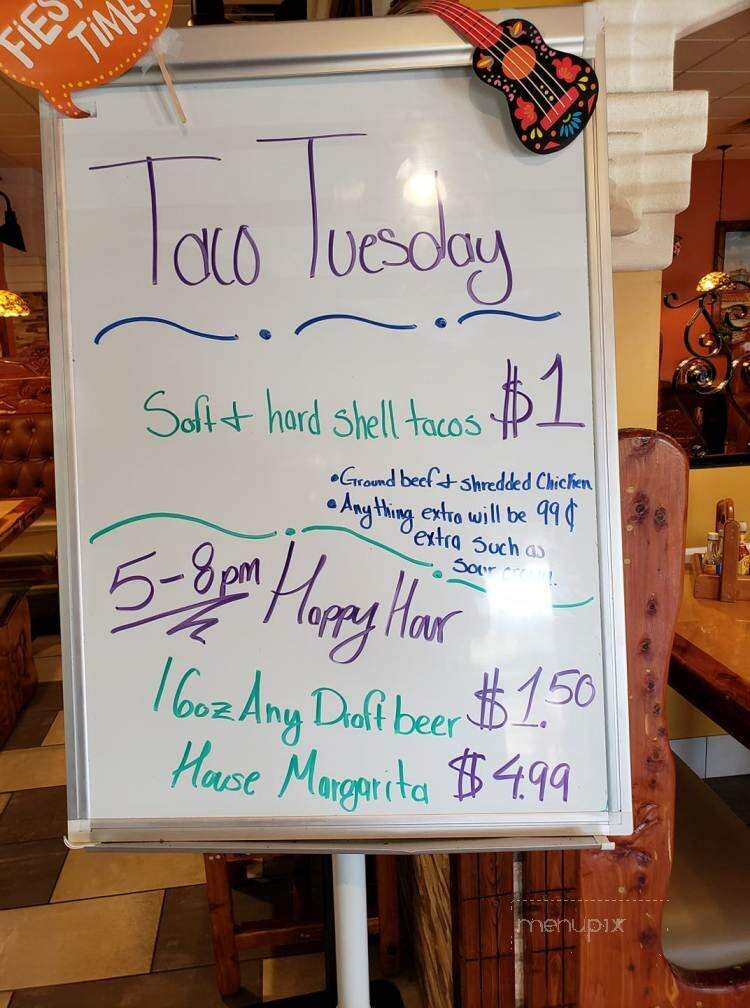 FIESTA
TIME!
Taco Tuesday
Soft & hard shell tacos $1
•Ground beef & shredded Chicken
•Anything extra will be 99¢
extra such as
sour cream.
5-8pm Happy Hour
16oz Any Draft beer $1.50
House Margarita $4.99
menupix